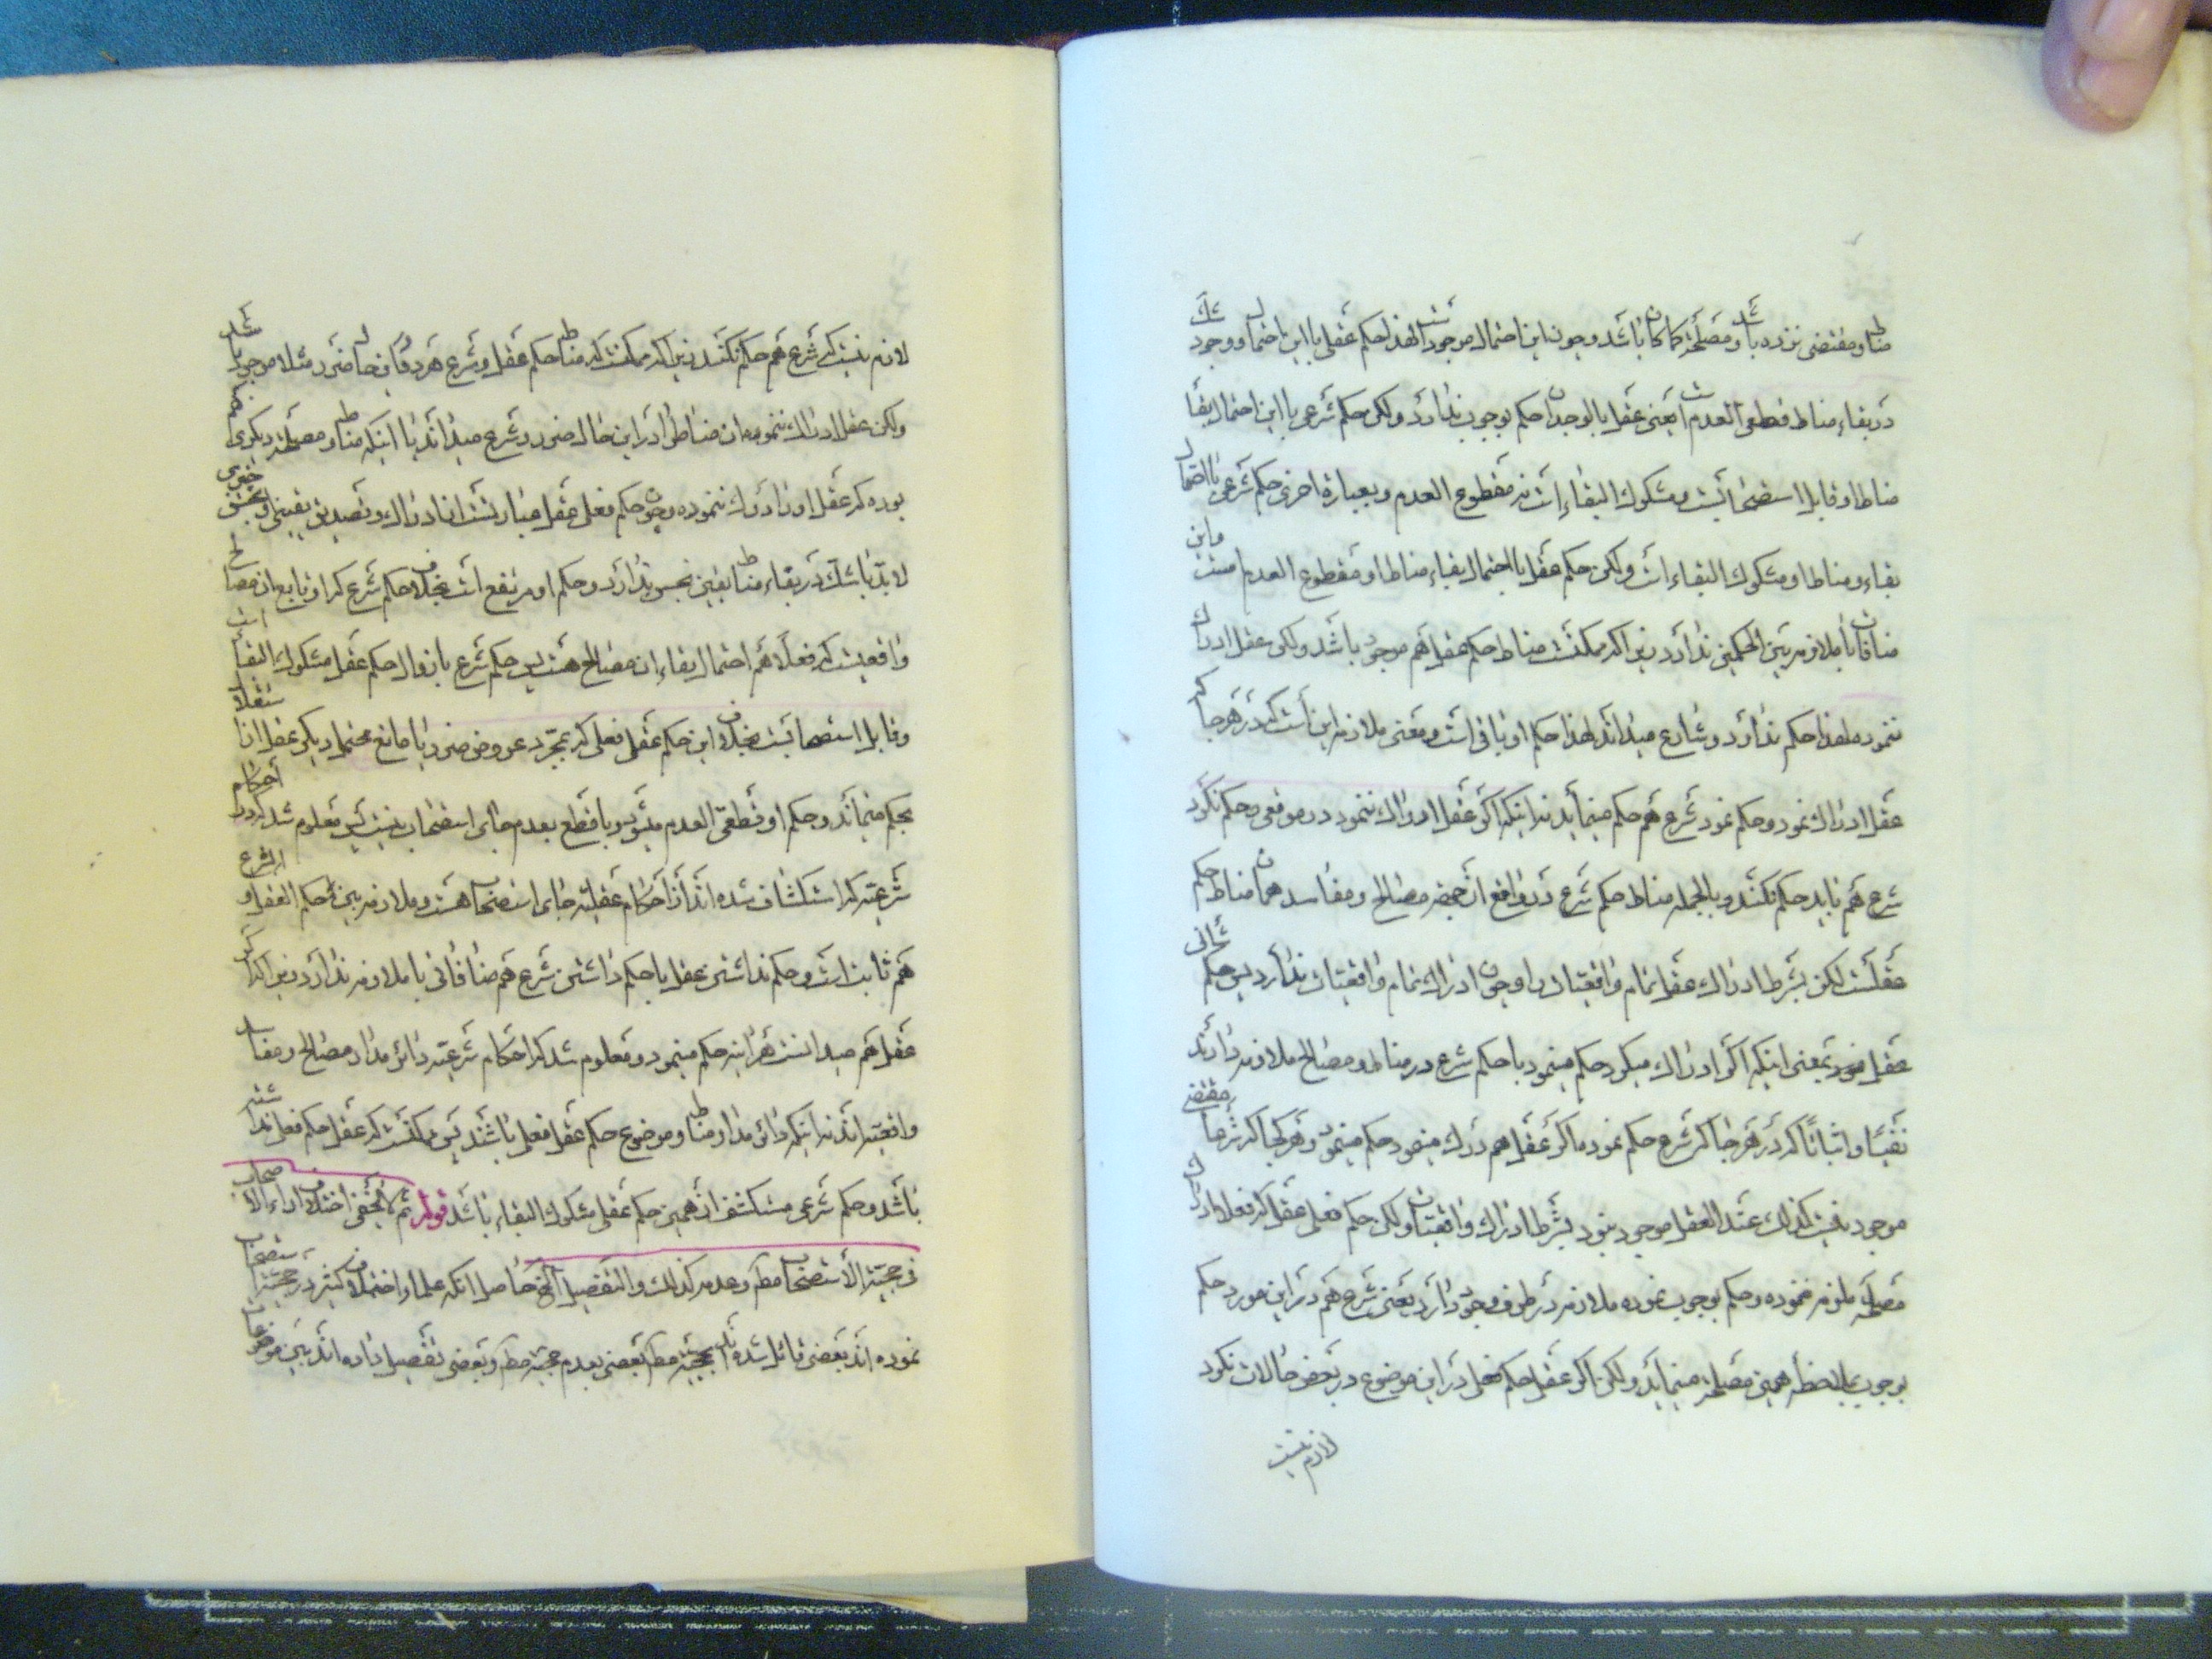 مناط و مقتضی نزده باشد و مصلحة کما کان باشد و چون این احتمال موجود است لهذا حکم عقل با این احتمال و وجود شک
در بقاء مناط قطعی العدم است یعنی عقل بالوجدان حکم بوجوب ندارد ولکن حکم شرعی با این احتمال بقاء
مناط او قابل استصحابست و مشکوک البقاء است نه مقطوع العدم و بعبارة اخری حکم شرعی با احتمال
بقاء و مناط او مشکوک البقاء است ولکن حکم عقل با احتمال بقاء مناط او مقطوع العدم است و این
منافات با ملازمه بین الحکمین ندارد زیرا که ممکنست مناط حکم عقل هم موجود باشد ولکن عقل ادراک
ننموده لهذا حکم ندارد و شارع میداند لهذا حکم او باقی است و معنی ملازمه این است که در هر جا که
عقل ادراک نمود و حکم نمود شرع هم حکم مینماید نه اینکه اگر عقل ادراک ننمود در موقعی و حکم نکرد
شرع هم باید حکم نکند و بالجمله مناط حکم شرع در واقع از حیث مصالح و مفاسد همان مناط حکم
عقلست لکن بشرط ادراک عقل تمام واقعیات را و چون ادراک تمام واقعیات ندارد پس حکم شأنی
عقل بمعنی اینکه اگر ادراک میکرد حکم مینمود با حکم شرع در مناط و مصالح ملازمه دارند
نفیًا و اثباتًا که در هر جا که شرع حکم نموده اگر عقل هم درک مینمود حکم مینمود و هر کجا که شرعا مقتضی
موجود نیست کذلک عند العقل موجود نبود بشرط ادراک واقعیات ولکن حکم فعلی عقل که فعلا ادراک
مصلحة ملزمه نموده و حکم بوجوب نموده ملازمه در طرف وجود دارد یعنی شرع هم در این مورد حکم
بوجوب بملاحظه همین مصلحة مینماید ولکن اگر عقل حکم فعلی در این موضوع در بعض حالات نکرد
لازم نیست
لازم نیست که شرع هم حکم نکند زیرا که ممکنست که مناط حکم عقل و شرع هر دو در این حال ضرر مثلا موجود باشد
ولکن عقل ادراک ننموده آن مناط را در این حال ضرر و شرع میداند یا اینکه مناط و مصلحة دیگری هم
بوده که عقل او را درک ننموده و چون حکم فعلی عقل عبارتست از ادراک و تصدیق یقینی و بنحو جزمی
لابد با شک در بقاء مناط یقین بحسن ندارد و حکم او مرتفع است بخلاف حکم شرع که او تابع آن مصالح
واقعیست که فعلًا هم احتمال بقاء آن مصالح هست پس حکم شرع با زوال حکم عقل مشکوک البقاء است
و قابل استصحابست بخلاف این حکم عقل فعلی که بمجرد عروض ضرر یا مانع محتمل دیگر عقل استقلالا
حکم مینماند و حکم او قطعی العدم میشود و با قطع بعدم جای استصحاب نیست پس معلوم شد که در احکام
شرعیّه که استکشاف شده اند از احکام عقلیّه جای استصحاب هست و ملازمه بین حکم العقل و الشرع
هم ثابت است و حکم نداشتن عقل با حکم داشتن شرع هم منافاتی با ملازمه ندارد زیرا که اگر
عقل هم میدانست هرآینه حکم مینمود و معلوم شد که احکام شرعیّه دائر مدار مصالح و مفاسد
واقعیّه اند نه اینکه دائر مدار مناط و موضوع حکم عقل فعلی باشند پس ممکنست که عقل حکم فعلی نداشته
باشد و حکم شرعی مستکشف از همین حکم عقلی مشکوک البقاء باشد قوله ثم لا یخفی اختلاف آراء الاصحاب
فی حجیّة الاستصحاب مط و عدمه کذلک و التفصیل الخ حاصل آنکه علماء اختلاف کثیر در حجیّة استصحاب
نموده اند بعضی قائل شده اند بحجیّة مط بعضی بعدم حجیّة مط و بعضی تفصیل داده اند بین موضوعات